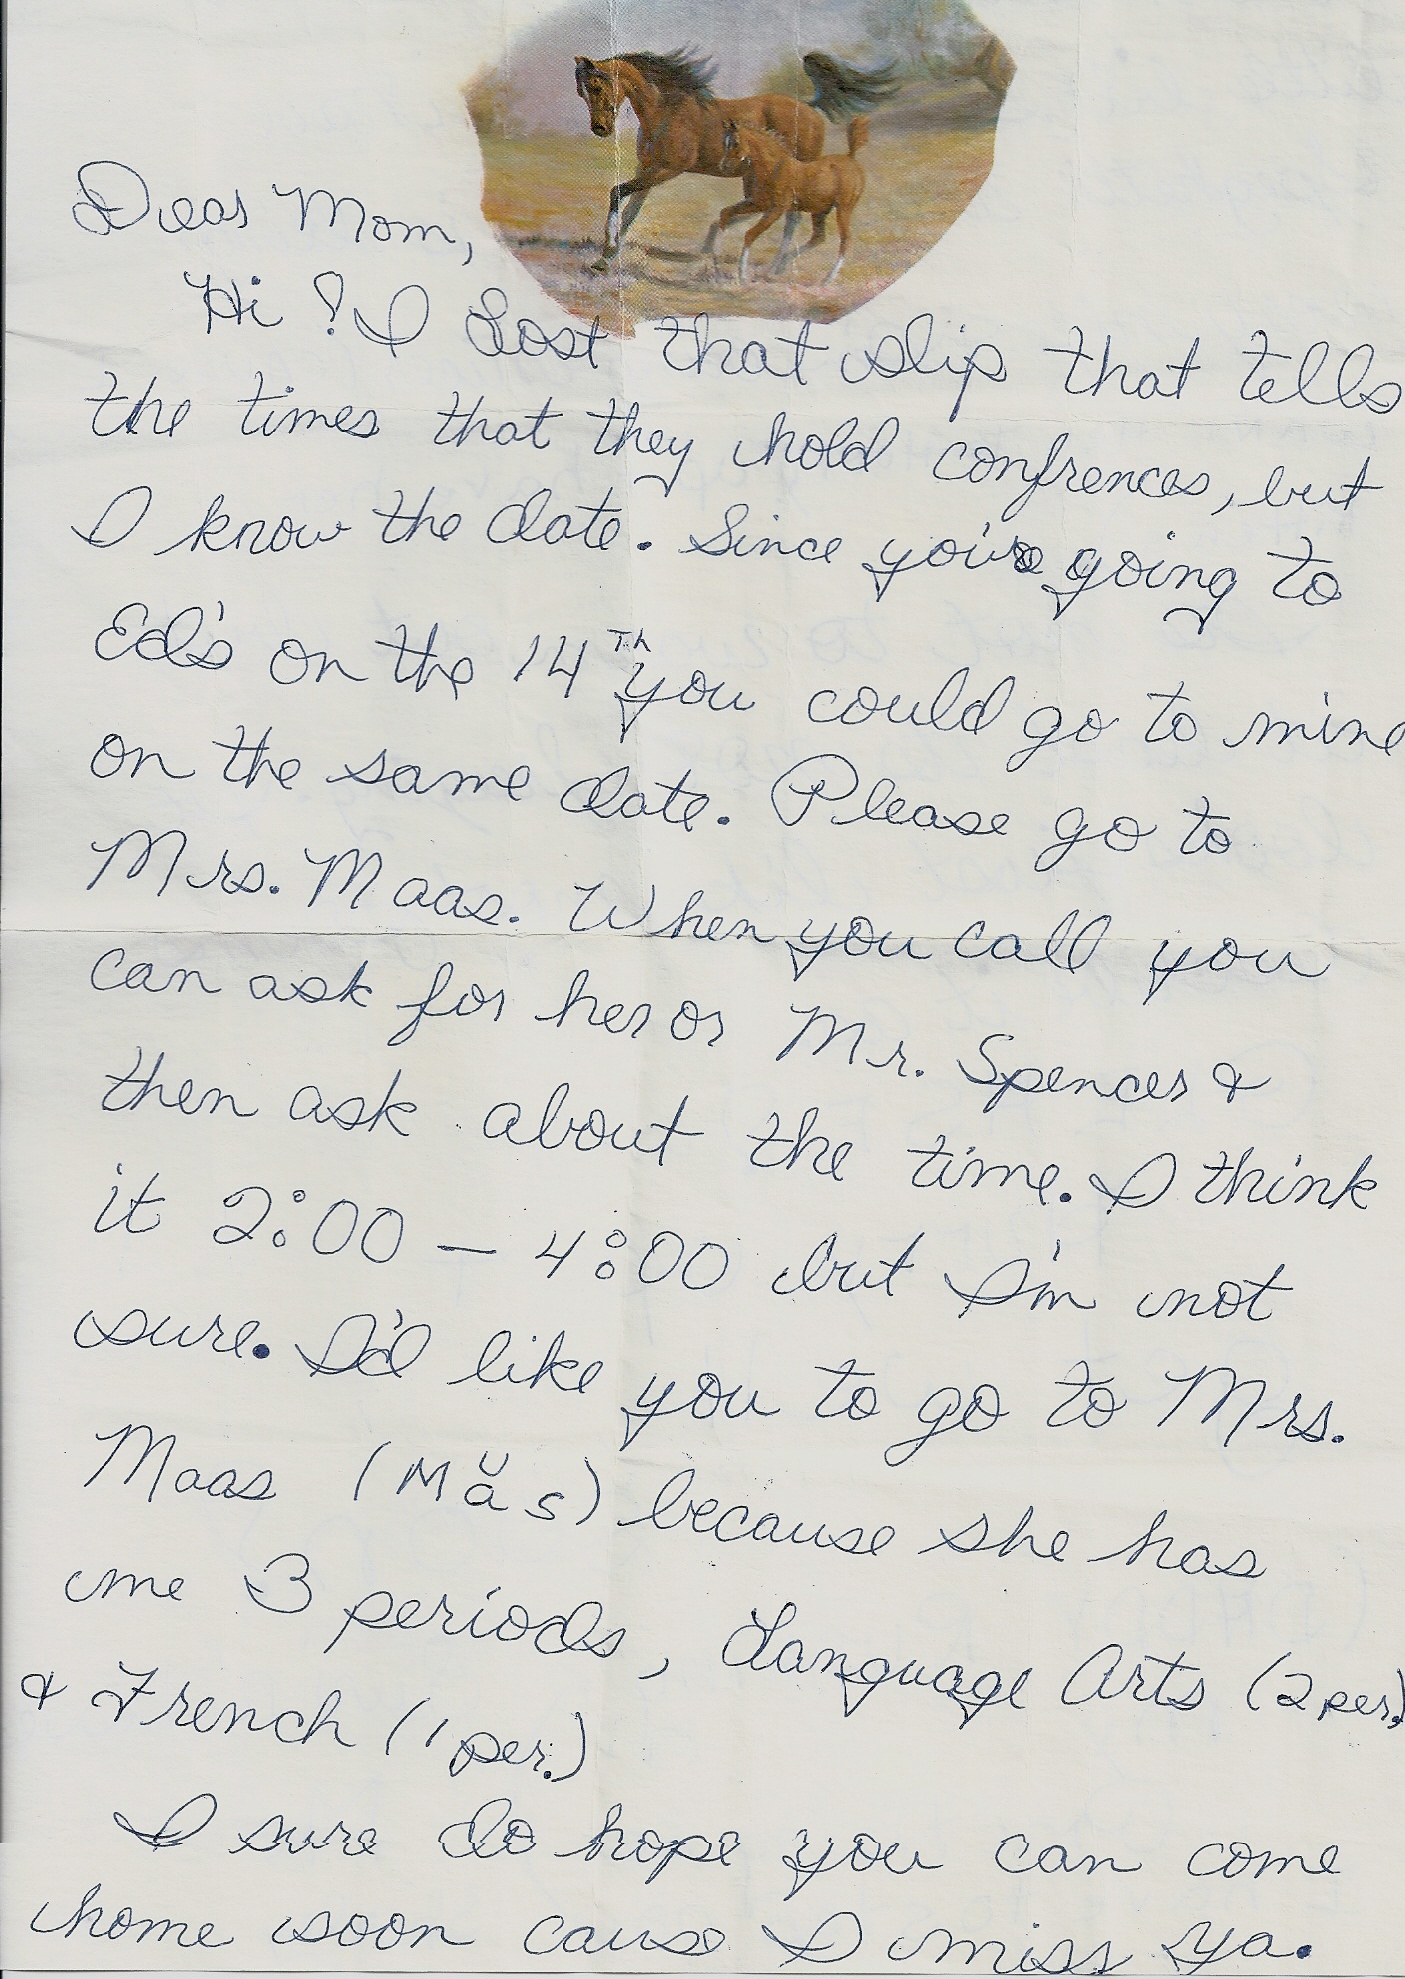 Dear Mom,
Hi! I Lost that slip that tells
the times that they hold confrences, but
I know the date. Since you're going to
Ed's on the 14Th you could go to mine
on the same date. Please go to
Mrs. Maas. When you call you
can ask for her or Mr. Spencer &
then ask about the time. I think
it 2:00 – 4:00 but I'm not
sure. I'd like you to go to Mrs.
Maas (Măs) because she has
me 3 periods, Language Arts (2 per.)
& French (1 per.)
I sure do hope you can come
home soon cause I miss ya.